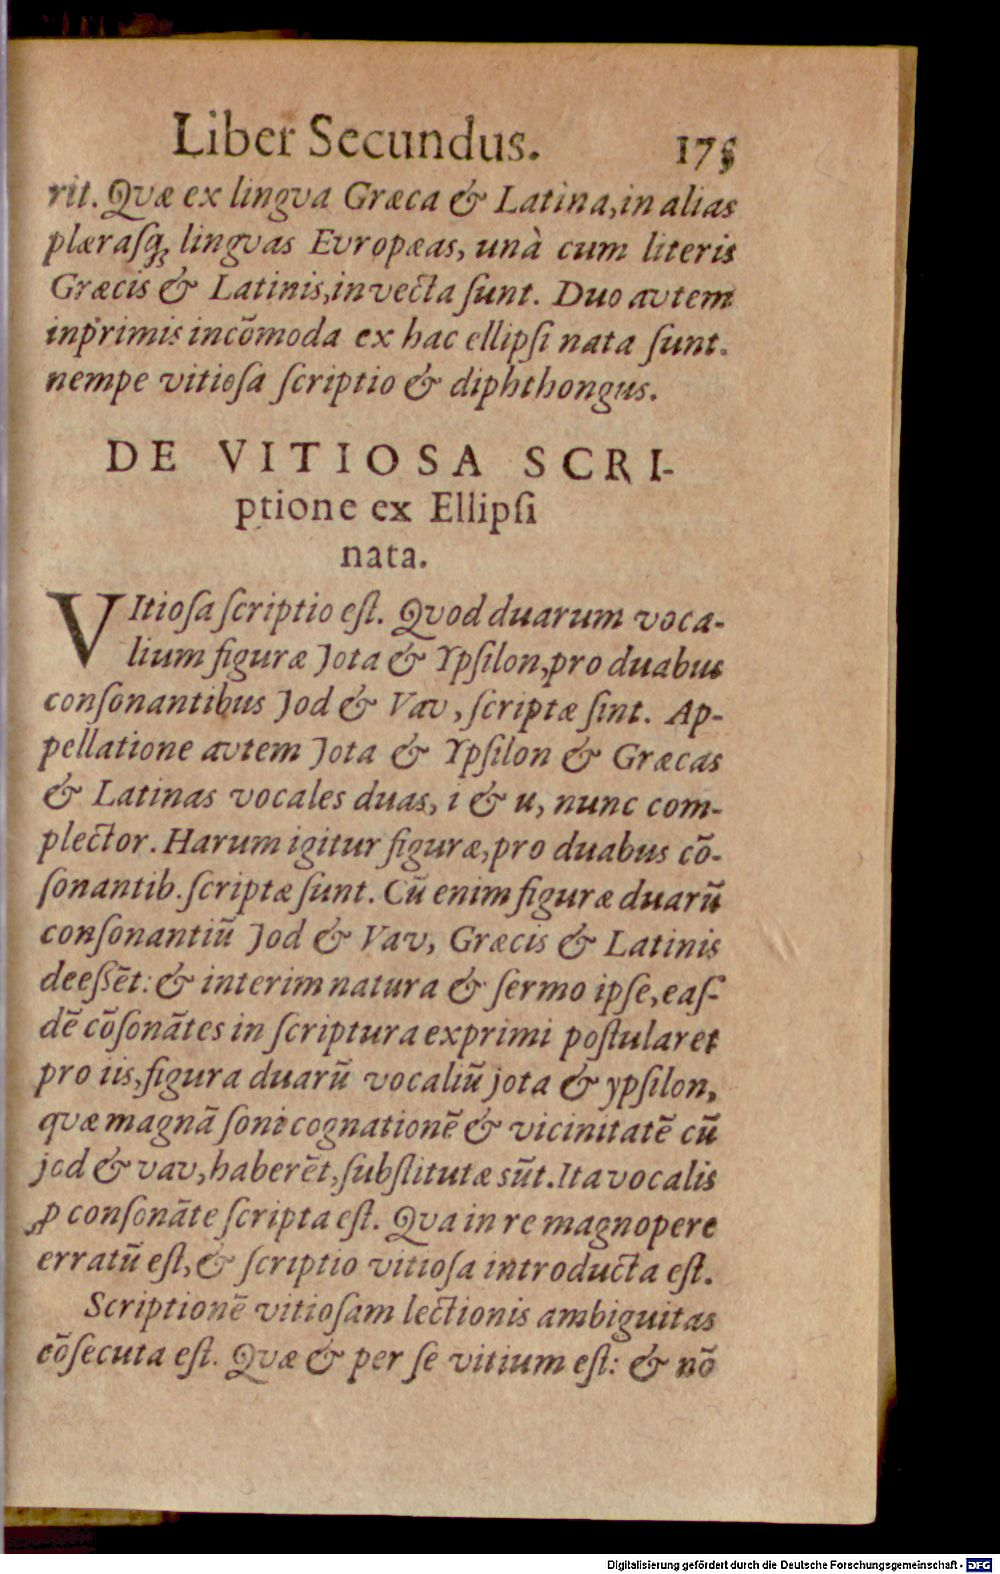 Liber Secundus. 175
rit. Qvæ ex lingva Græca & Latina, in alias
plæraſq́ʒ lingvas Evropæas, unà cum literis
Græcis & Latinis, invecta ſunt. Duo avtem
inprimis incõmoda ex hac ellipſi nata ſunt.
nempe vitioſa ſcriptio & diphthongus.
DE VITIOSA SCRI-
ptione ex Ellipſi
nata.
VItioſa ſcriptio eſt. Qvod duarum voca-
lium figuræ Jota & Ypſilon, pro duabus
conſonantibus Jod & Vav, ſcriptæ ſint. Ap-
pellatione avtem Jota & Ypſilon & Græcas
& Latinas vocales duas, i & u, nunc com-
plector. Harum igitur figuræ, pro duabus cõ-
ſonantib. ſcriptæ ſunt. Cũ enim figuræ duarũ
conſonantiũ Jod & Vav, Græcis & Latinis
deeſſẽt: & interim natura & ſermo ipſe, eaſ-
dẽ cõſonãtes in ſcriptura exprimi poſtularet
pro iis, figura duarũ vocaliũ jota & ypſilon,
qvæ magnã ſoni cognationẽ & vicinitatẽ cũ
jod & vav, haberẽt, ſubſtitutæ sũt. Ita vocalis
ꝓ conſonãte ſcripta eſt. Qva in re magnopere
erratũ eſt, & ſcriptio vitioſa introducta eſt.
Scriptionẽ vitioſam lectionis ambiguitas
cõſecuta eſt. Qvæ & per ſe vitium eſt: & nõ
Digitalisierung gefördert durch die Deutsche Forschungsgemeinschaft - DFG